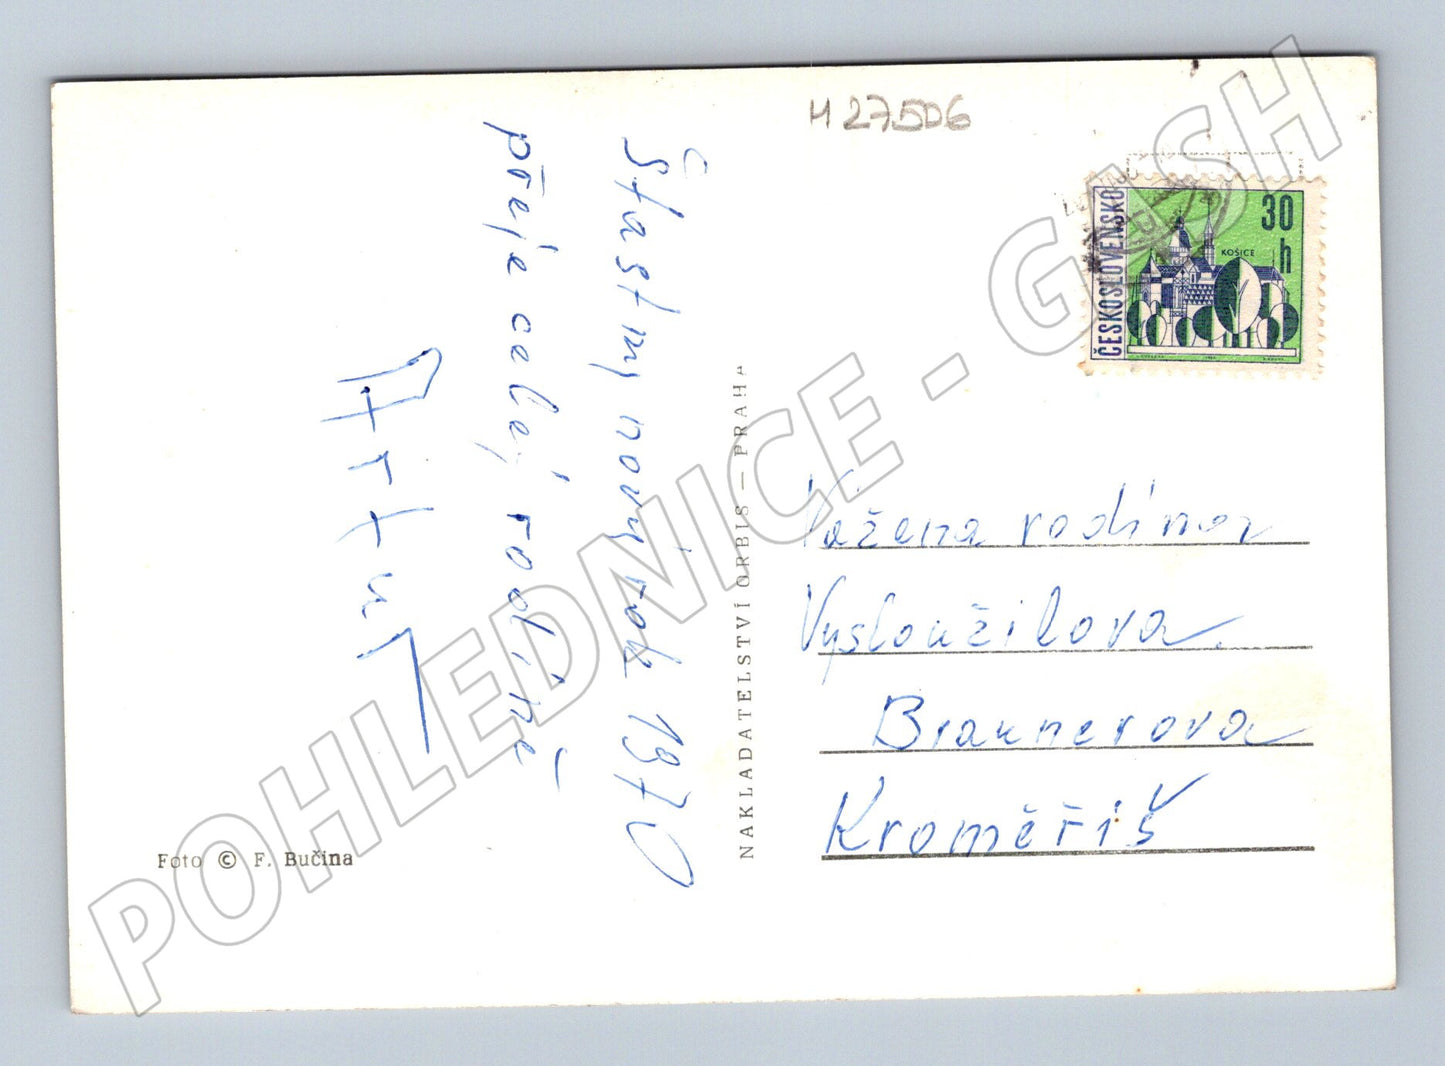 H 27506
Šťastny novy rok 1970
přeje celej rodině
Artur
Foto © F. Bučina
NAKLADATELSTVÍ ORBIS — PRAHA
ČESKOSLOVENSKO
30 h
KOŠICE
Važena rodina
Vysloužilova
Braunerova
Kroměřiš
POHLEDNICE - GASH